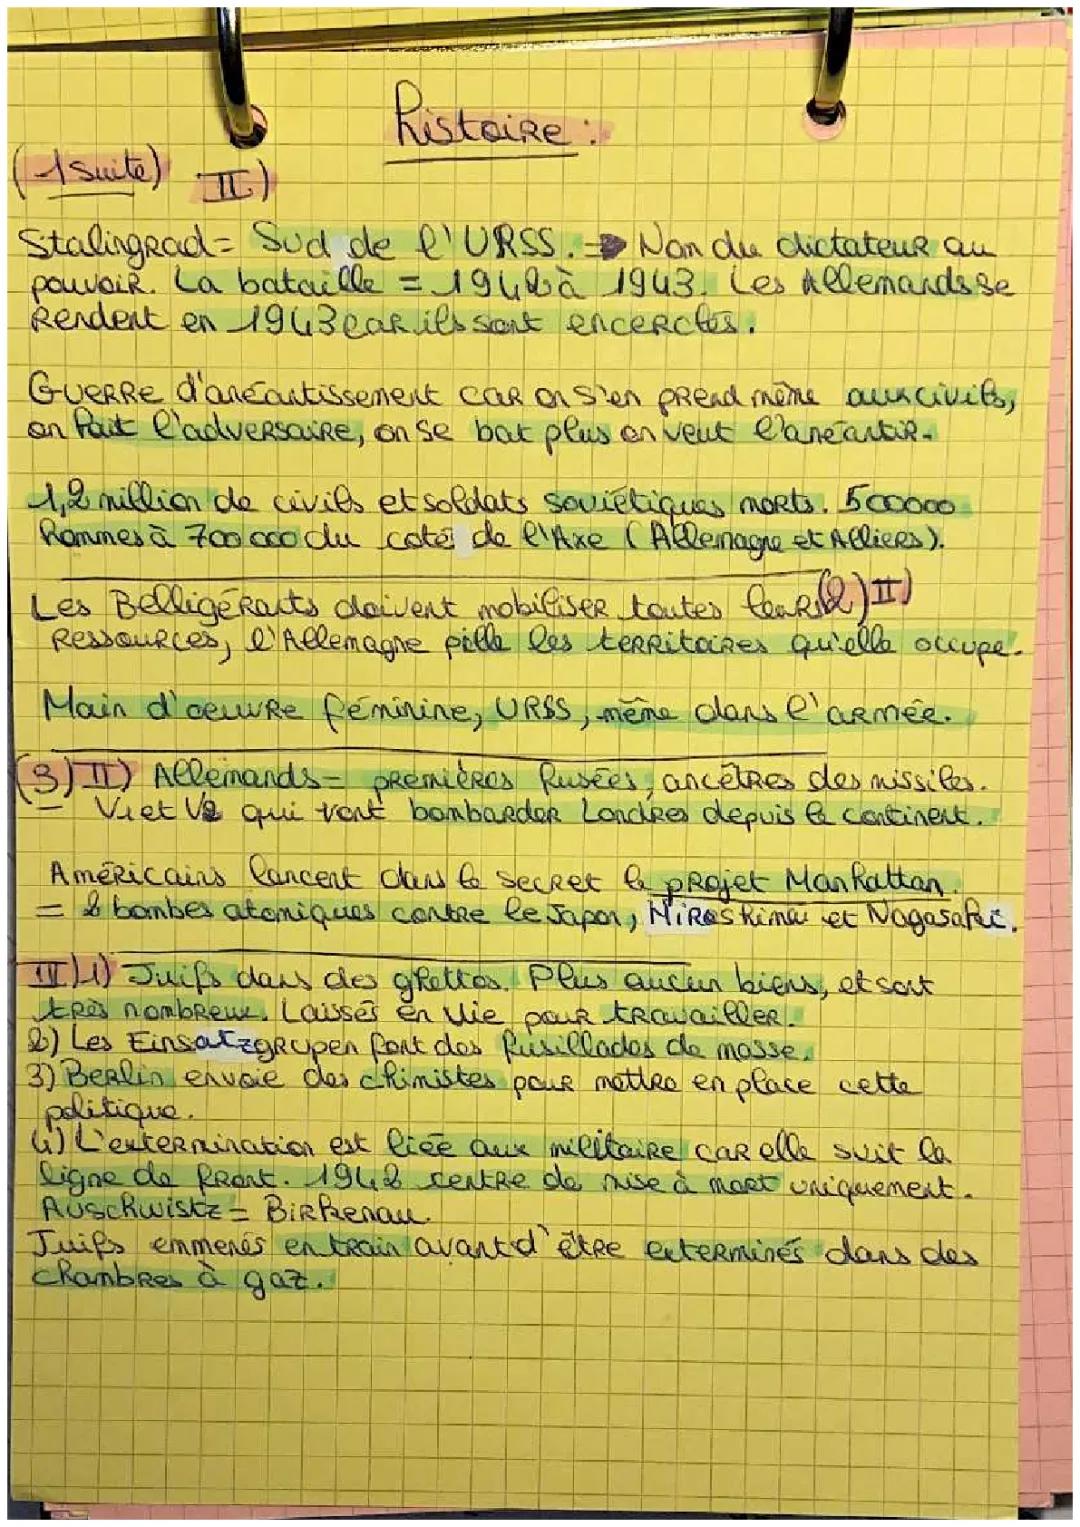 histoire :
(1 suite) II)
Stalingrad = Sud de l'URSS. → Nom du dictateur au
pouvoir. La bataille = 1942 à 1943. Les Allemands se
Rendent en 1943 car ils sont encerclés.
Guerre d'anéantissement car on s'en prend même aux civils,
on hait l'adversaire, on se bat plus on veut l'anéantir.
1,2 million de civils et soldats soviétiques morts. 500 000
hommes à 700 000 du coté de l'Axe (Allemagne et Alliers).
Les Belligérants doivent mobiliser toutes leurs 2) II)
Ressources, l'Allemagne pille les territoires qu'elle occupe.
Main d'oeuvre féminine, URSS, même dans l'armée.
3) II) Allemands = premières fusées, ancêtres des missiles.
— V1 et V2 qui vont bombarder Londres depuis le continent.
Américains lancent dans le secret le projet Manhattan.
= 2 bombes atomiques contre le Japon, Hiroshima et Nagasaki.
III) 1) Juifs dans des ghettos. Plus aucun biens, et sont
très nombreux. Laissés en vie pour travailler.
2) Les Einsatzgrupen font des fusillades de masse.
3) Berlin envoie des chimistes pour mettre en place cette
politique.
4) L'extermination est liée aux militaire car elle suit la
ligne de front. 1942 centre de mise à mort uniquement.
Auschwistz = Birkenau.
Juifs emmenés en train avant d'être exterminés dans des
chambres à gaz.